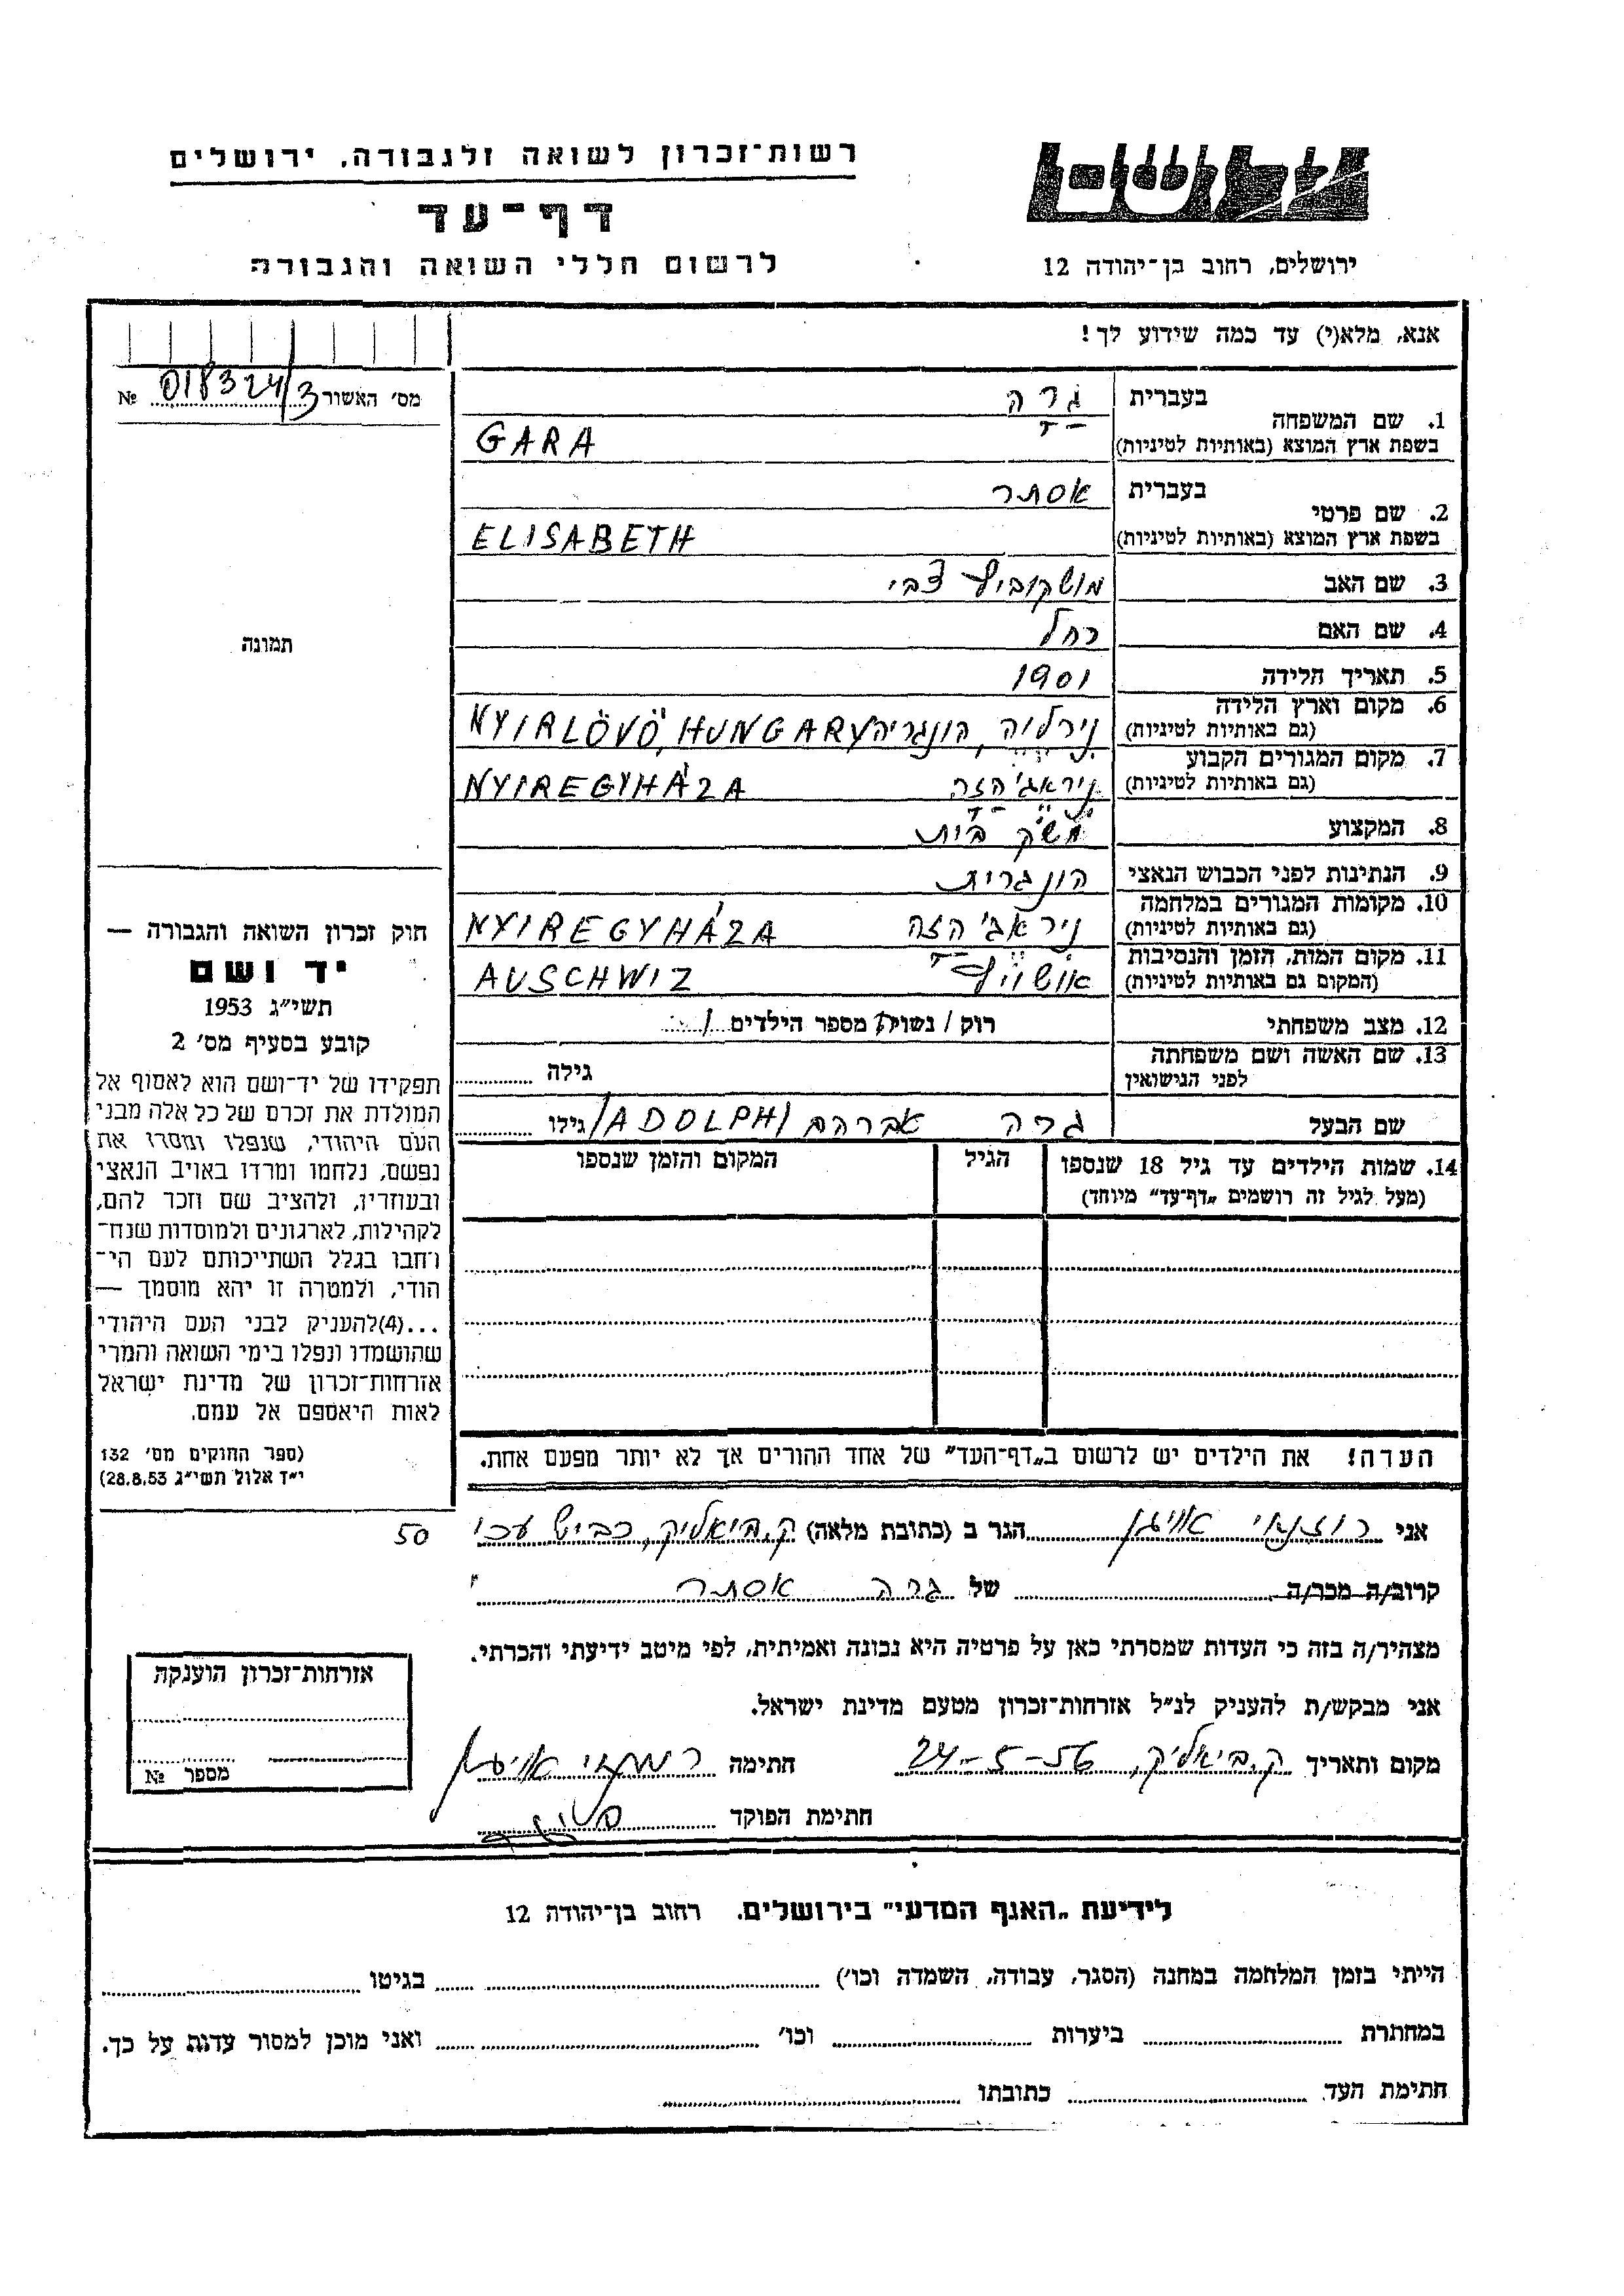 רשות־זכרון לשואה ולגבורה, ירושלים
דף־עד
לרשום חללי השואה והגבורה
יד ושם
ירושלים, רחוב בן־יהודה 12
אנא, מלא(י) עד כמה שידוע לך!
מס׳ האשור 018324/3 №
תמונה
חוק זכרון השואה והגבורה —
יד ושם
תשי״ג 1953
קובע בסעיף מס׳ 2
תפקידו של יד־ושם הוא לאסוף אל
המולדת את זכרם של כל אלה מבני
העם היהודי, שנפלו ומסרו את
נפשם, נלחמו ומרדו באויב הנאצי
ובעוזריו, ולהציב שם וזכר להם,
לקהילות, לארגונים ולמוסדות שנח־
רבו בגלל השתייכותם לעם הי־
הודי, ולמטרה זו יהא מוסמך —
...(4)להעניק לבני העם היהודי
שהושמדו ונפלו בימי השואה והמרי
אזרחות־זכרון של מדינת ישראל
לאות היאספם אל עמם.
(ספר החוקים מס׳ 132
י״ד אלול תשי״ג 28.8.53)
1. שם המשפחה
בעברית גרה
בשפת ארץ המוצא (באותיות לטיניות) GARA
2. שם פרטי
בעברית אסתר
בשפת ארץ המוצא (באותיות לטיניות) ELISABETH
3. שם האב מושקוביץ צבי
4. שם האם רחל
5. תאריך הלידה 1901
6. מקום וארץ הלידה
(גם באותיות לטיניות) נירלוה, הונגריה NYIRLÖVÖ, HUNGARY
7. מקום המגורים הקבוע
(גם באותיות לטיניות) ניראג׳הזה NYIREGYHÁZA
8. המקצוע משק בית
9. הנתינות לפני הכבוש הנאצי הונגרית
10. מקומות המגורים במלחמה
(גם באותיות לטיניות) ניראג׳הזה NYIREGYHÁZA
11. מקום המות, הזמן והנסיבות
(המקום גם באותיות לטיניות) אושויץ AUSCHWIZ
12. מצב משפחתי רוק / נשוי/ה מספר הילדים 1
13. שם האשה ושם משפחתה
לפני הנישואין גילה
שם הבעל גרה אברהם /ADOLPH/ גילו
14. שמות הילדים עד גיל 18 שנספו
(מעל לגיל זה רושמים „דף־עד״ מיוחד)
הגיל
המקום והזמן שנספו
הערה! את הילדים יש לרשום ב„דף־העד״ של אחד ההורים אך לא יותר מפעם אחת.
אני רוזנאי אויגן הגר ב (כתובת מלאה) ק. ביאליק, כביש עכו 50
קרוב/ה מכר/ה של גרה אסתר
מצהיר/ה בזה כי העדות שמסרתי כאן על פרטיה היא נכונה ואמיתית, לפי מיטב ידיעתי והכרתי.
אני מבקש/ת להעניק לנ״ל אזרחות־זכרון מטעם מדינת ישראל.
מקום ותאריך ק. ביאליק, 24-5-56 חתימה
חתימת הפוקד
אזרחות־זכרון הוענקה
מספר №
לידיעת „האגף המדעי״ בירושלים. רחוב בן־יהודה 12
הייתי בזמן המלחמה במחנה (הסגר, עבודה, השמדה וכו׳) בגיטו
במחתרת ביערות וכו׳ ואני מוכן למסור עדות על כך.
חתימת העד כתובתו